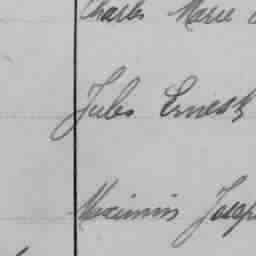 Charles Marie
Jules Ernest
Maximin Joseph